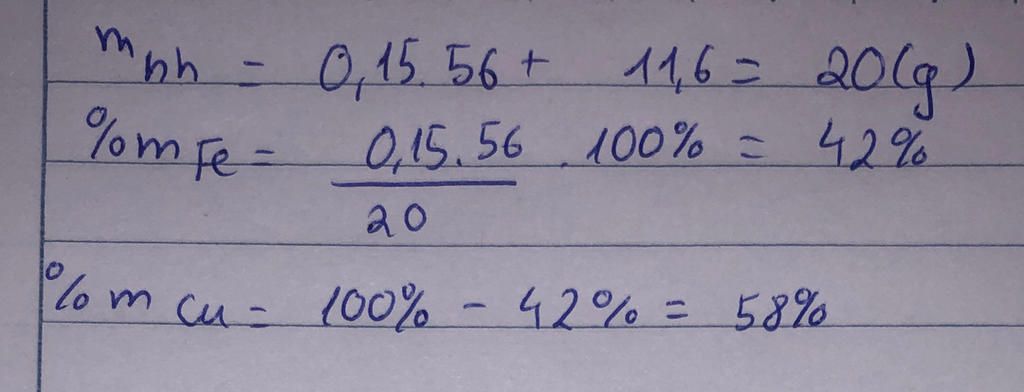 m hh = 0,15.56 + 11,6 = 20(g)
%m Fe = 0,15.56 / 20 . 100% = 42%
%m Cu = 100% - 42% = 58%